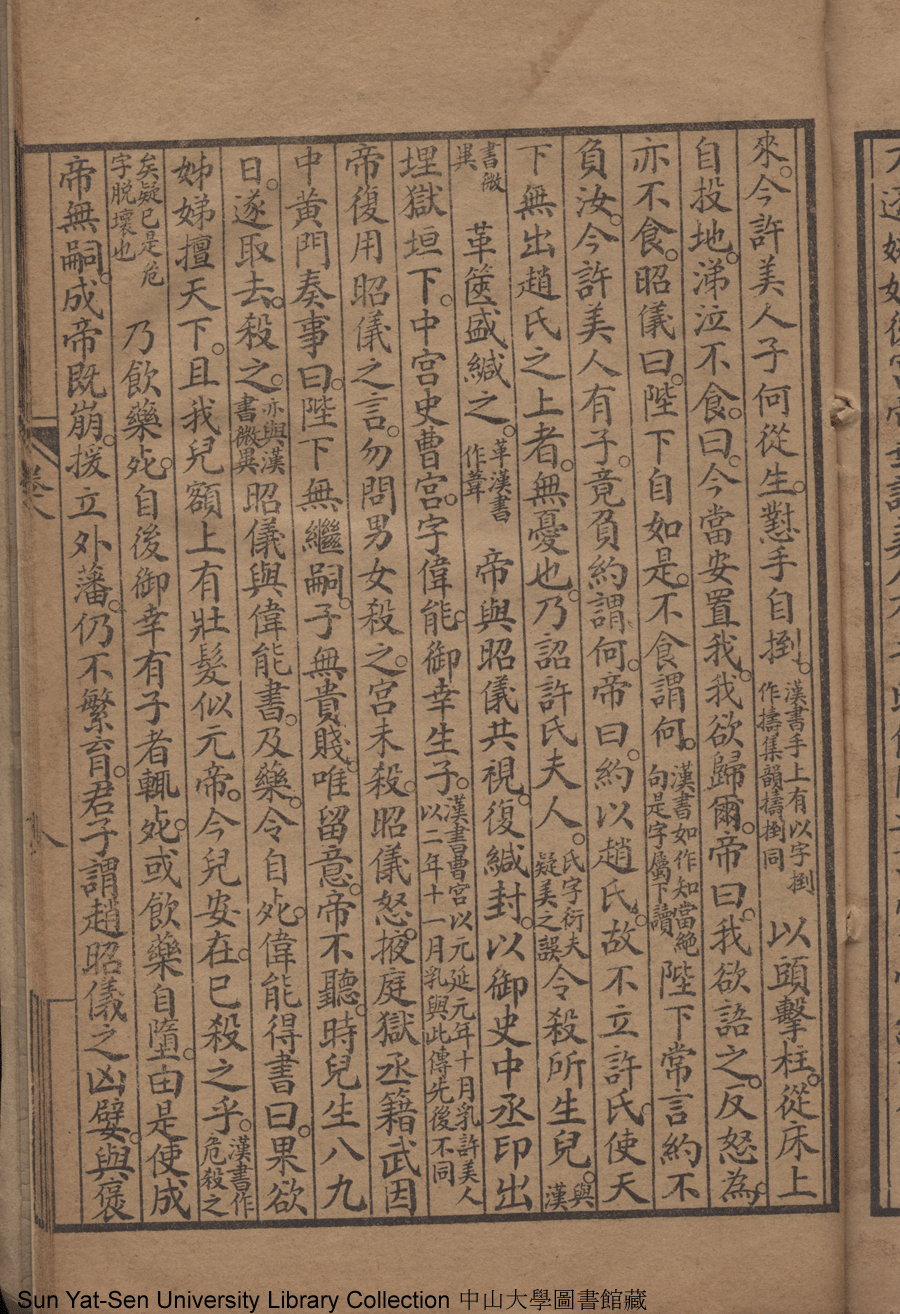 來。今許美人子何從生。懟手自捯。漢書手上有以字捯作擣集韻擣捯同以頭擊柱。從床上
自投地。涕泣不食。曰。今當安置我。我欲歸爾。帝曰。我欲語之。反怒為。
亦不食。昭儀曰。陛下自如是。不食謂何。漢書如作知當絕句是字屬下讀陛下常言約不
負汝。今許美人有子。竟負約謂何。帝曰。約以趙氏。故不立許氏。使天
下無出趙氏之上者。無憂也。乃詔許氏夫人。氏字衍夫疑美之誤令殺所生兒。與漢
書微異革篋盛緘之。革漢書作葦帝與昭儀共視。復緘封。以御史中丞印出
埋獄垣下。中宮史曹宮。字偉能。御幸生子。漢書曹宮以元延元年十月乳許美人以二年十一月乳與此傳先後不同
帝復用昭儀之言。勿問男女殺之。宮未殺。昭儀怒。掖庭獄丞籍武因
中黃門奏事曰。陛下無繼嗣。子無貴賤。唯留意。帝不聽。時兒生八九
日。遂取去。殺之。亦與漢書微異昭儀與偉能書。及藥。令自死。偉能得書曰。果欲
姊娣擅天下。且我兒額上有壯髮似元帝。今兒安在。已殺之乎。漢書作危殺之
矣疑已是危字脫壞也乃飲藥死。自後御幸有子者輒死。或飲藥自墮。由是使成
帝無嗣。成帝既崩。援立外藩。仍不繁育。君子謂趙昭儀之凶嬖。與褒
卷八
八
Sun Yat-Sen University Library Collection 中山大學圖書館藏